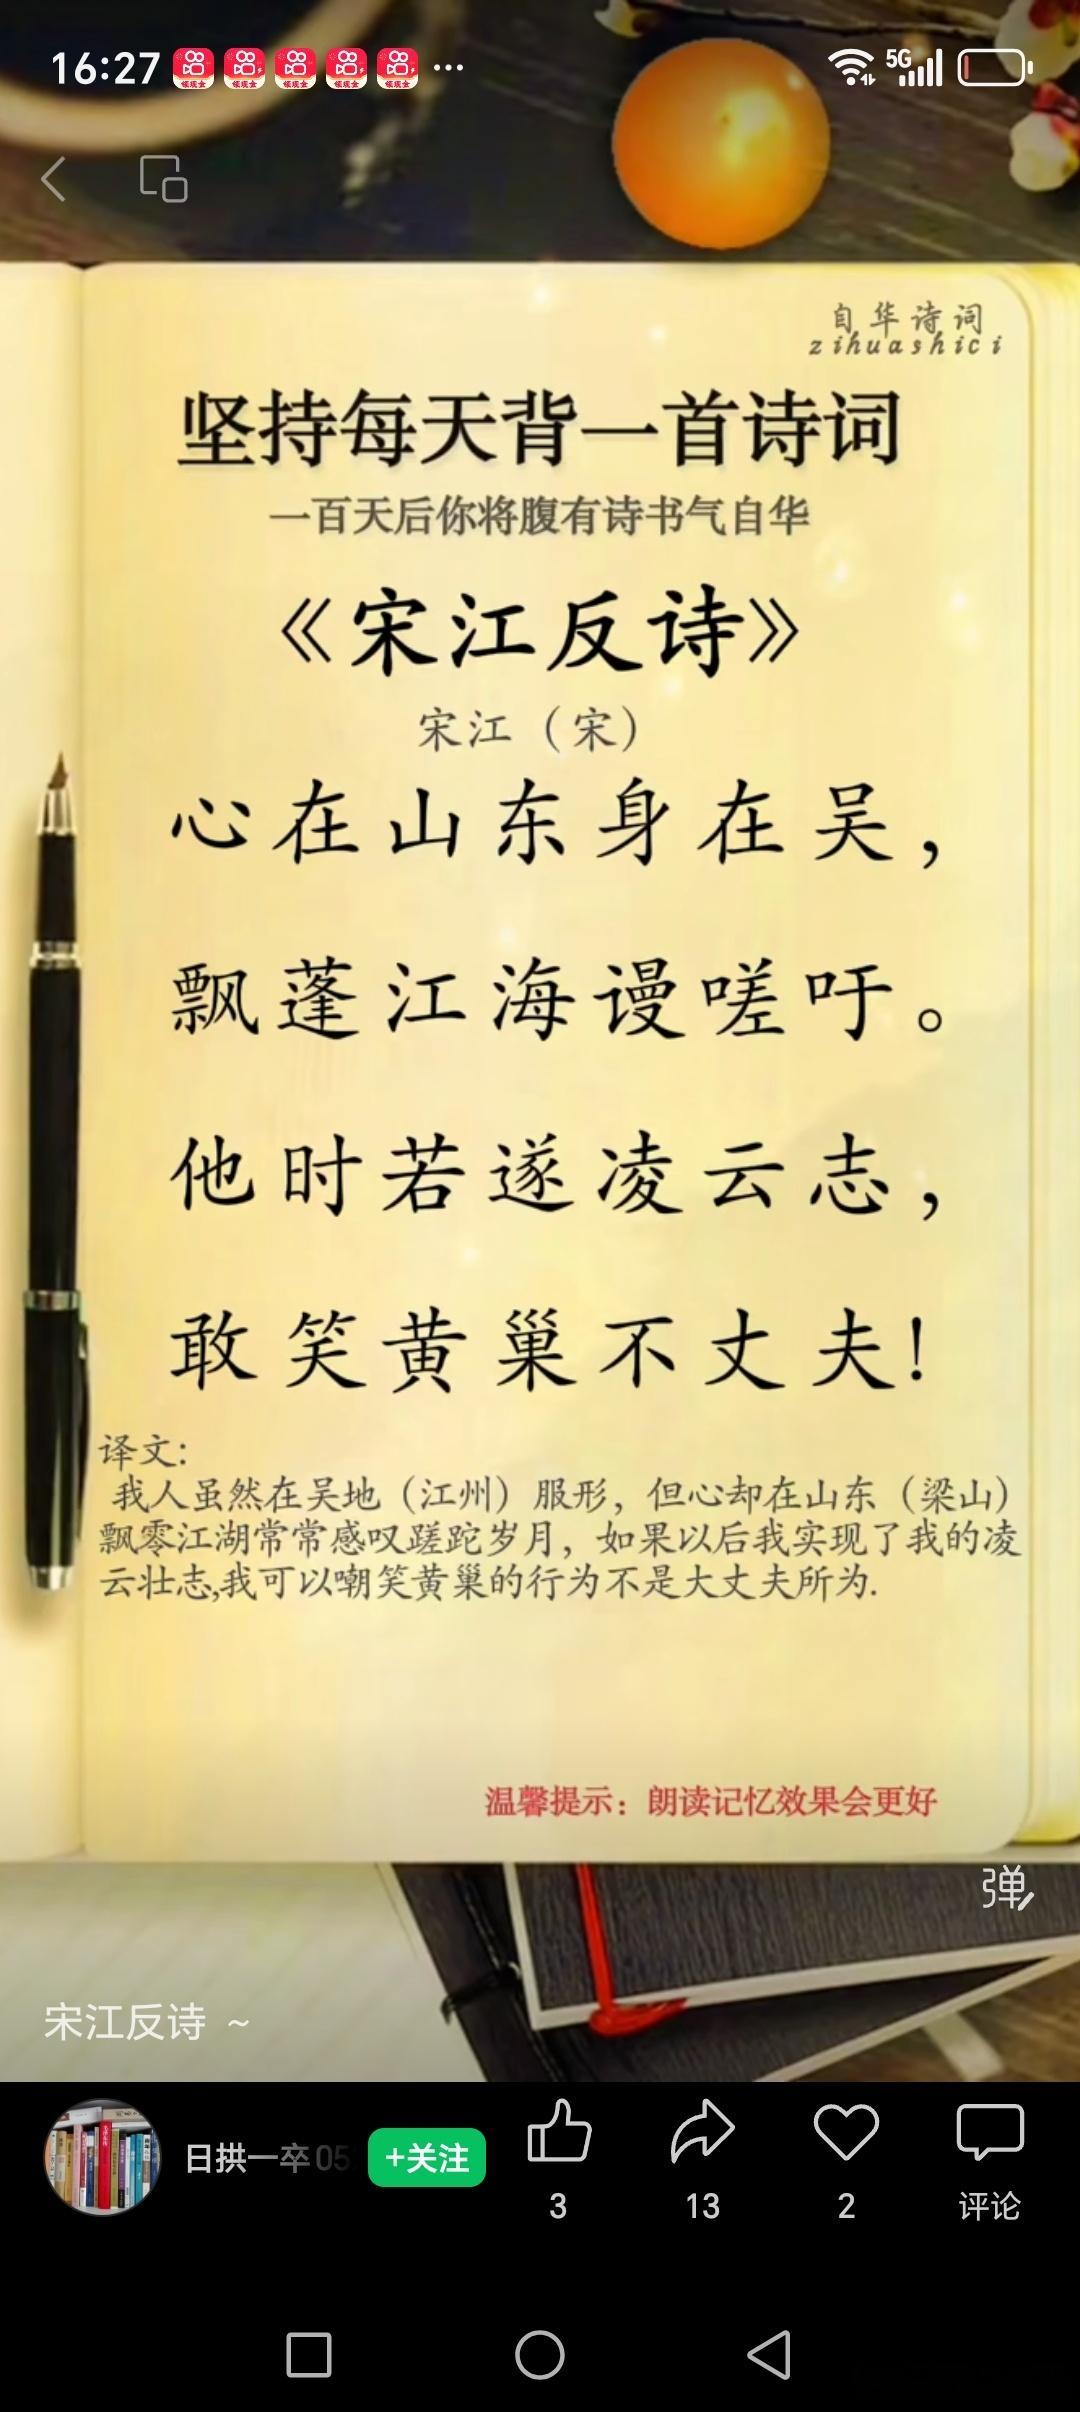 16:27
领现金 领现金 领现金 领现金 领现金 ...
5G
自华诗词
zihuashici
坚持每天背一首诗词
一百天后你将腹有诗书气自华
《宋江反诗》
宋江（宋）
心在山东身在吴，
飘蓬江海谩嗟吁。
他时若遂凌云志，
敢笑黄巢不丈夫！
译文：
我人虽然在吴地（江州）服形，但心却在山东（梁山）
飘零江湖常常感叹蹉跎岁月，如果以后我实现了我的凌
云壮志,我可以嘲笑黄巢的行为不是大丈夫所为.
温馨提示：朗读记忆效果会更好
弹
宋江反诗 ~
日拱一卒05
+关注
3
13
2
评论